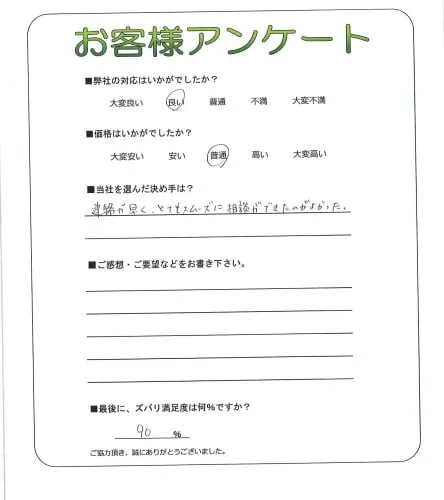 お客様アンケート
■弊社の対応はいかがでしたか?
大変良い 良い 普通 不満 大変不満
■価格はいかがでしたか?
大変安い 安い 普通 高い 大変高い
■当社を選んだ決め手は?
連絡が早く、とてもスムーズに相談ができたのがよかった。
■ご感想・ご要望などをお書き下さい。
■最後に、ズバリ満足度は何%ですか?
90 %
ご協力頂き、誠にありがとうございました。